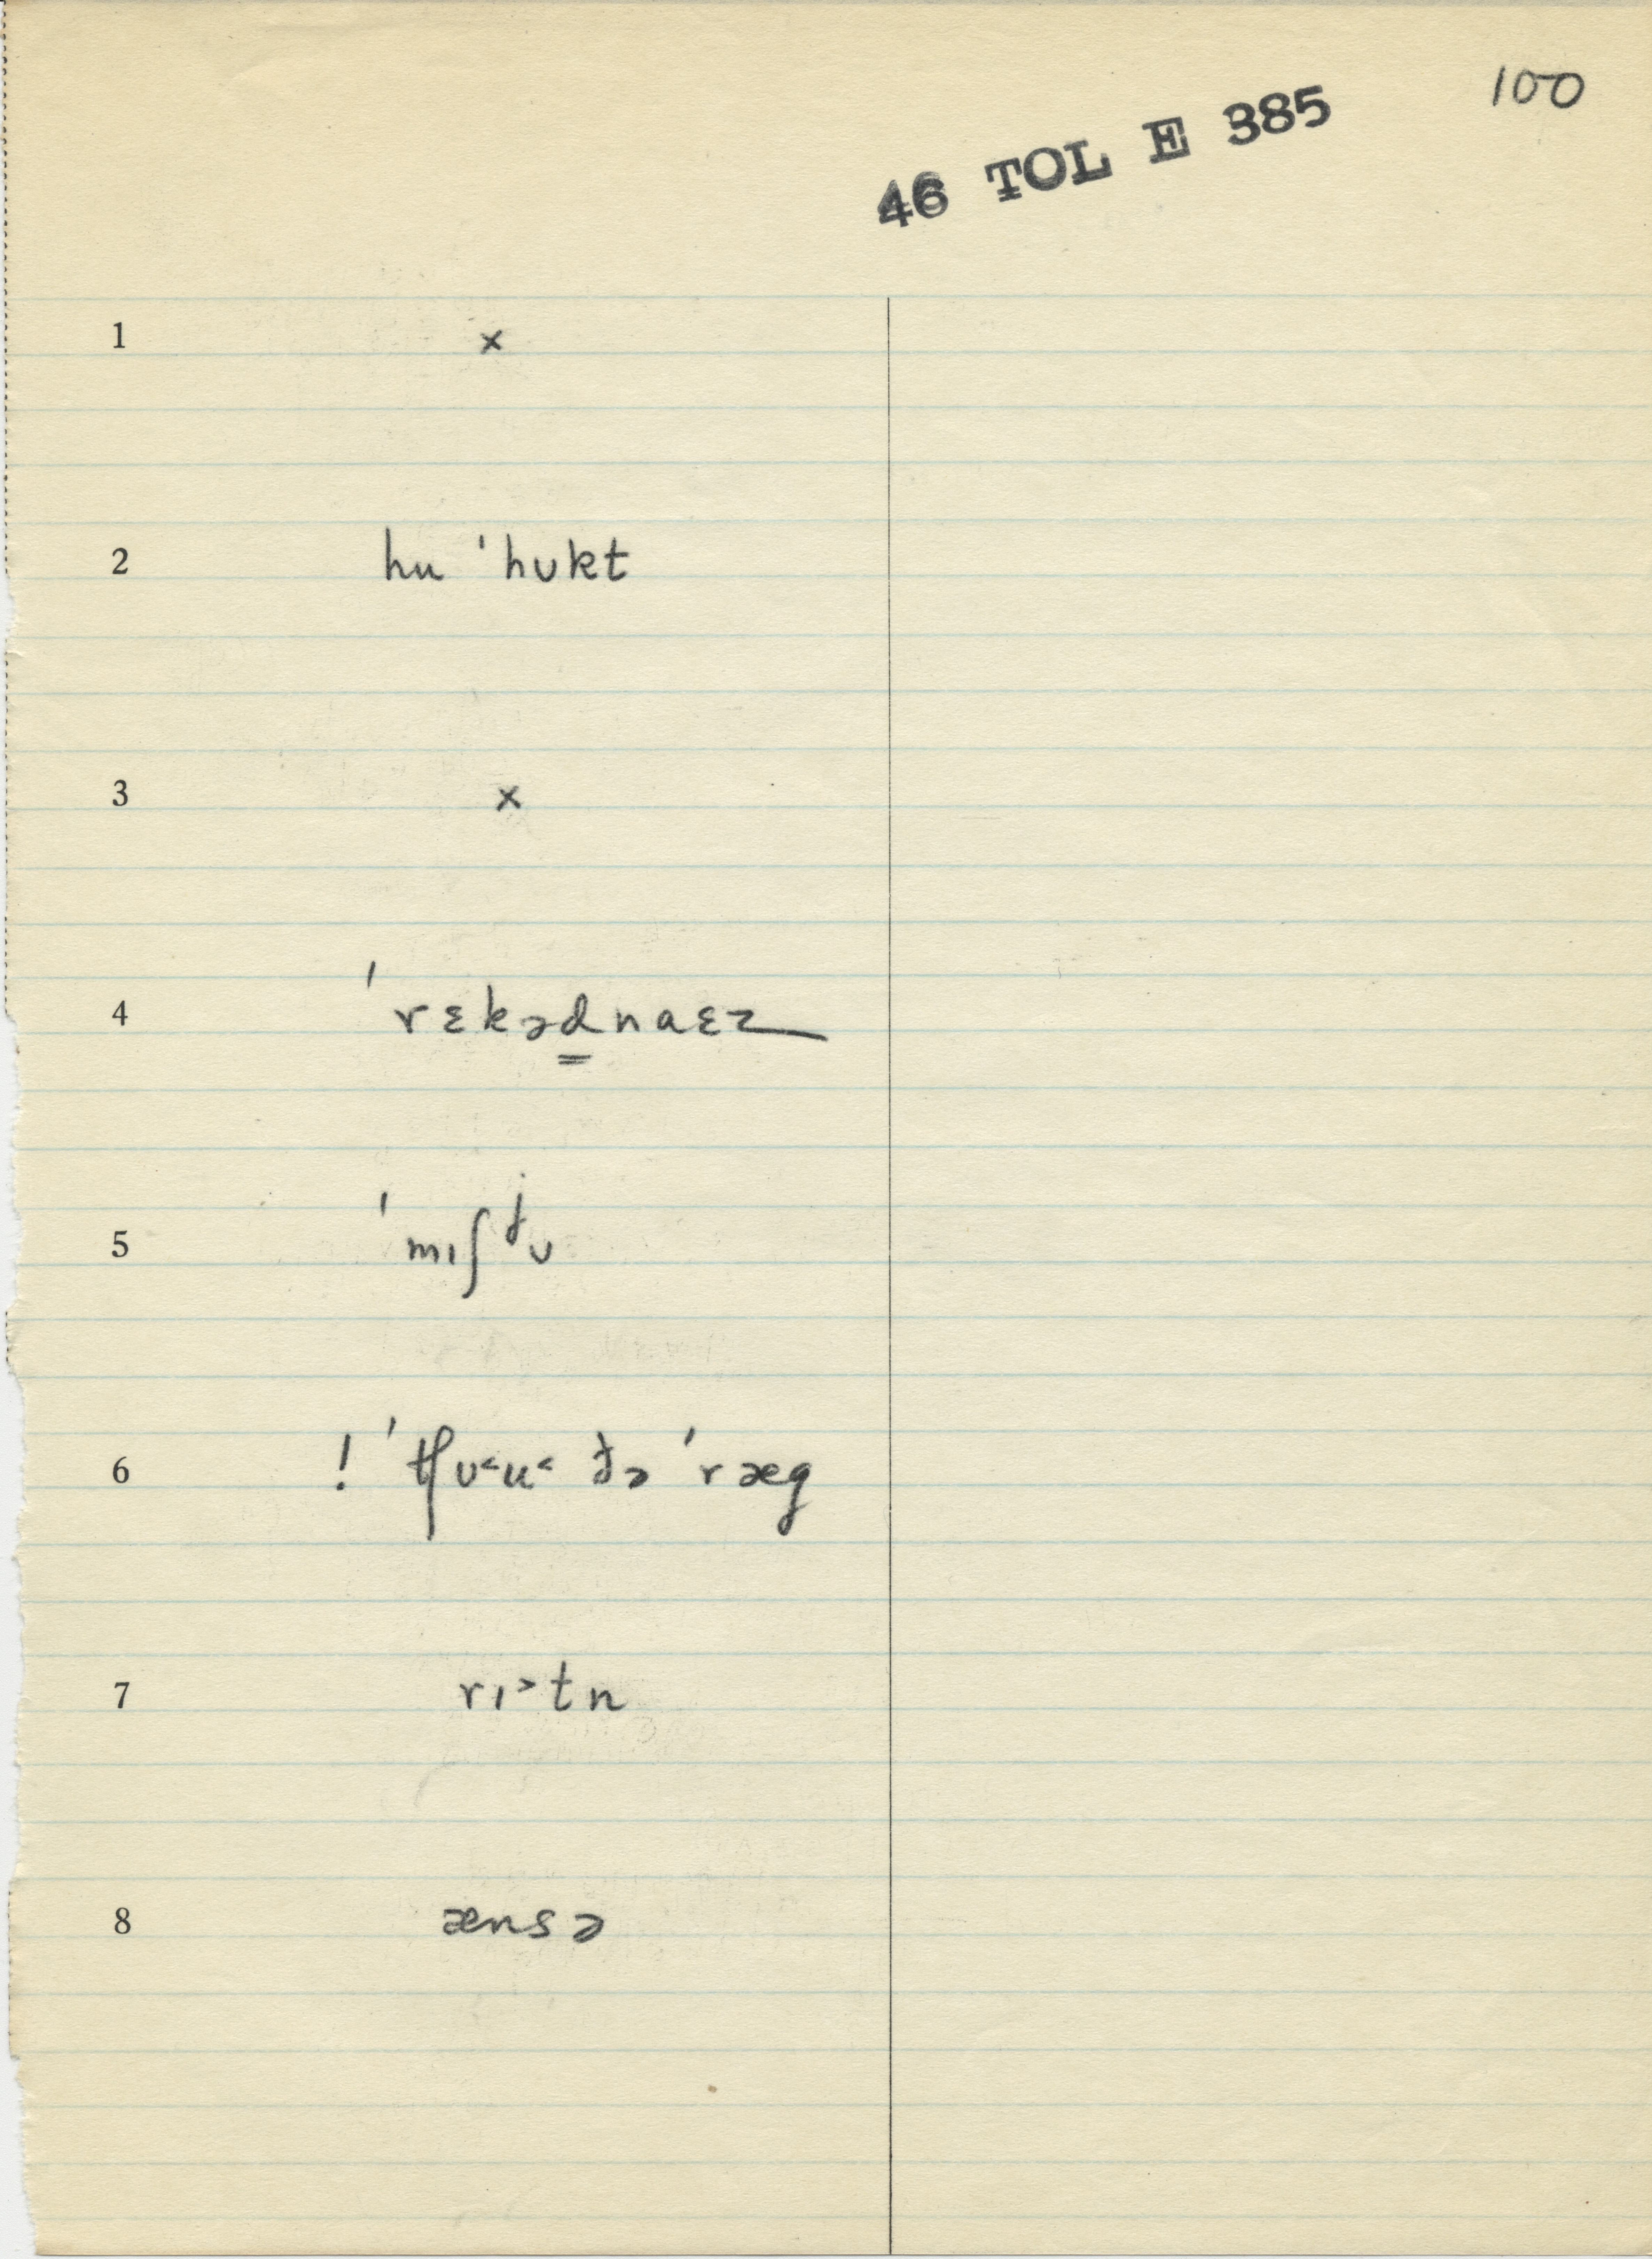 100
46 TOL E 385
1 ×
2 hu ˈhʊkt
3 ×
4 ˈrɛkəd̳naɛz
5 ˈmɪʃʲʊ
6 ! ˈtʃʊ˂u˂ ðə ˈræg
7 rɪ˃tn
8 ænsə